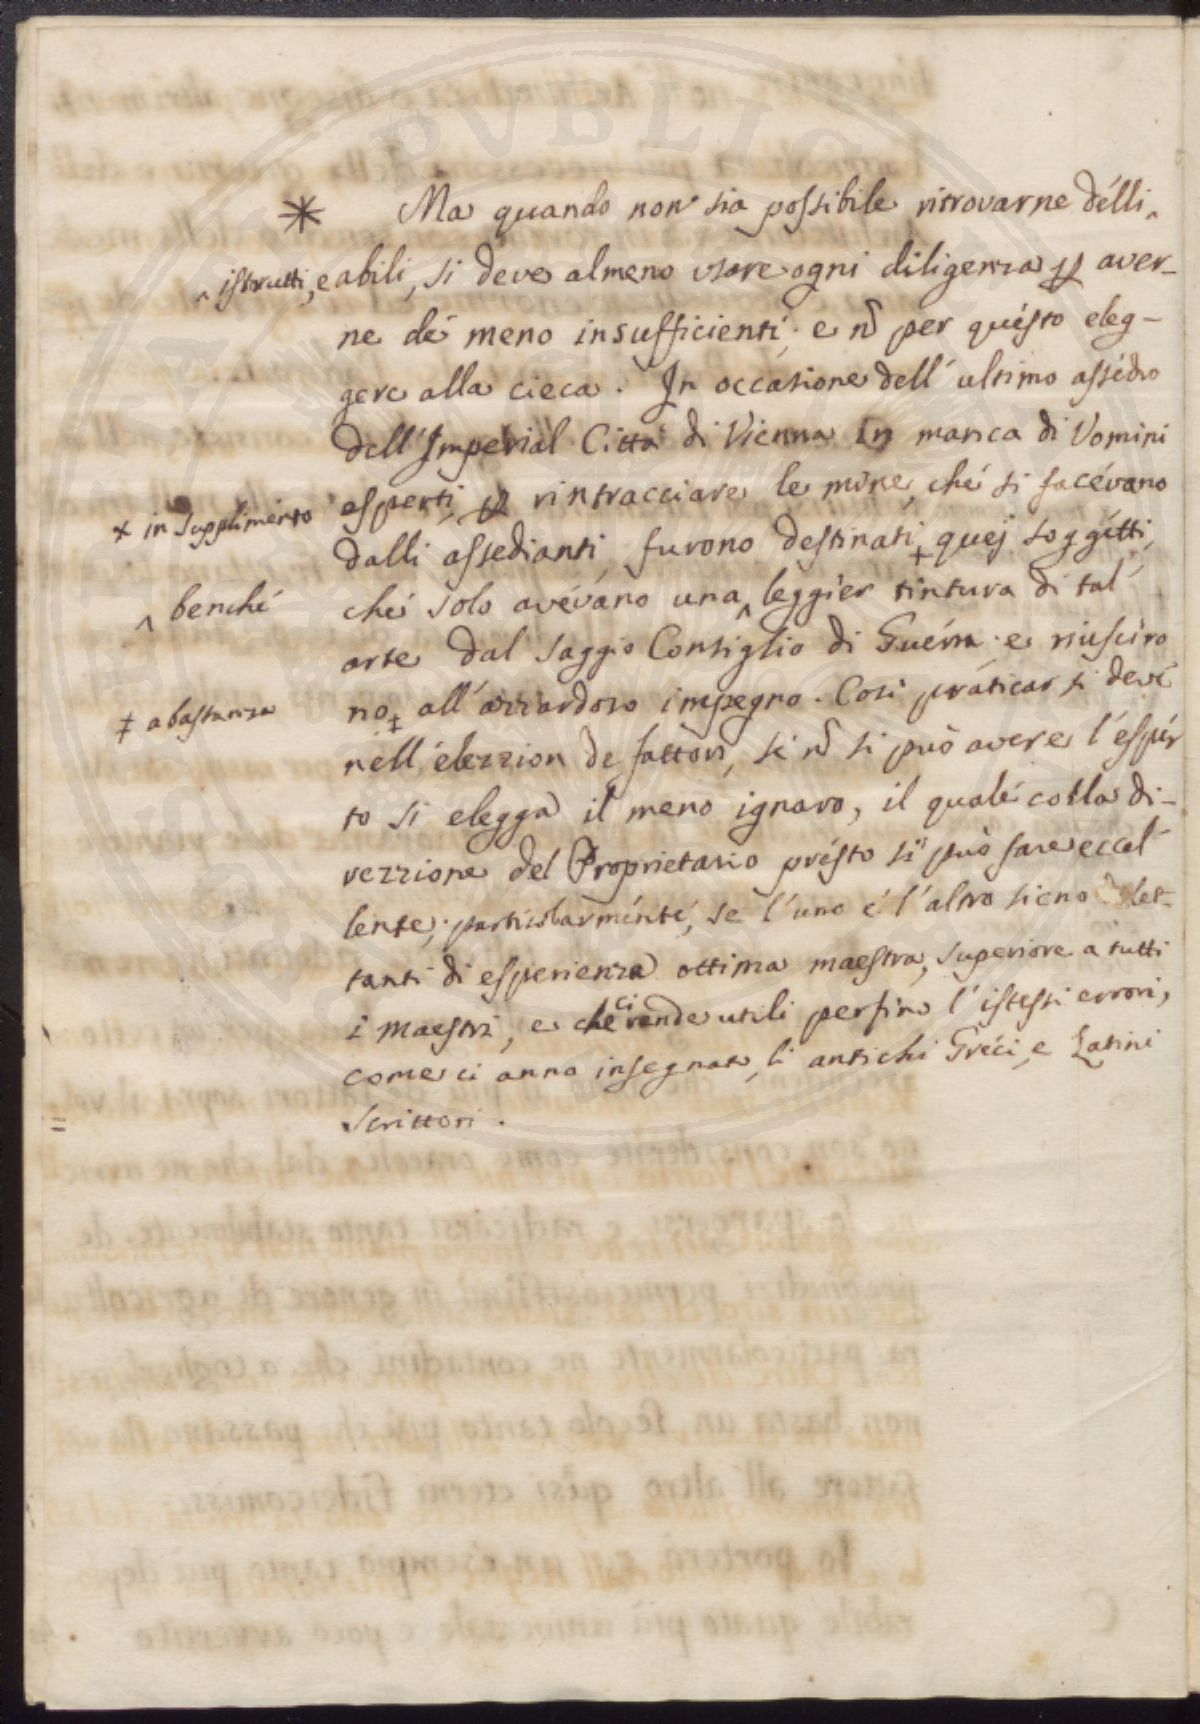 * Ma quando non sia possibile ritrovarne délli ^
^ istrutti, e abili, si deve almeno usare ogni diligenza p aver-
ne dé meno insufficienti; e nō per quésto eleg-
gere alla cieca. In occasione dell' ultimo assédio
dell' Imperial Città di Vienna in manca di Vomini
esperti, p rintracciare le mine, ché si facévano
× in supplimento
dalli assedianti, furono destinati + quej soggétti,
^ benché
ché solo avévano una ^ leggier tintura di tal'
arte dal saggio Consiglio di Guérra: e riusciro
‡ abastanza
no ‡ all' azzardoso impegno. Cosi práticar si devé
nell' elezzion de fattori, se nō si può avere l'espér
to si elegga il meno ignaro, il qualé colla di-
rezzione del Proprietario présto si può fare eccel-
lente; particolarménté, se l'uno é l'altro sieno dilet-
tanti di esperienza ottima maestra, superiore a tutti
i maestri, e che ci rende utili perfino l'istessi errori,
come ci anno insegnato li antichi Gréci, e Latini
=
Scrittori.